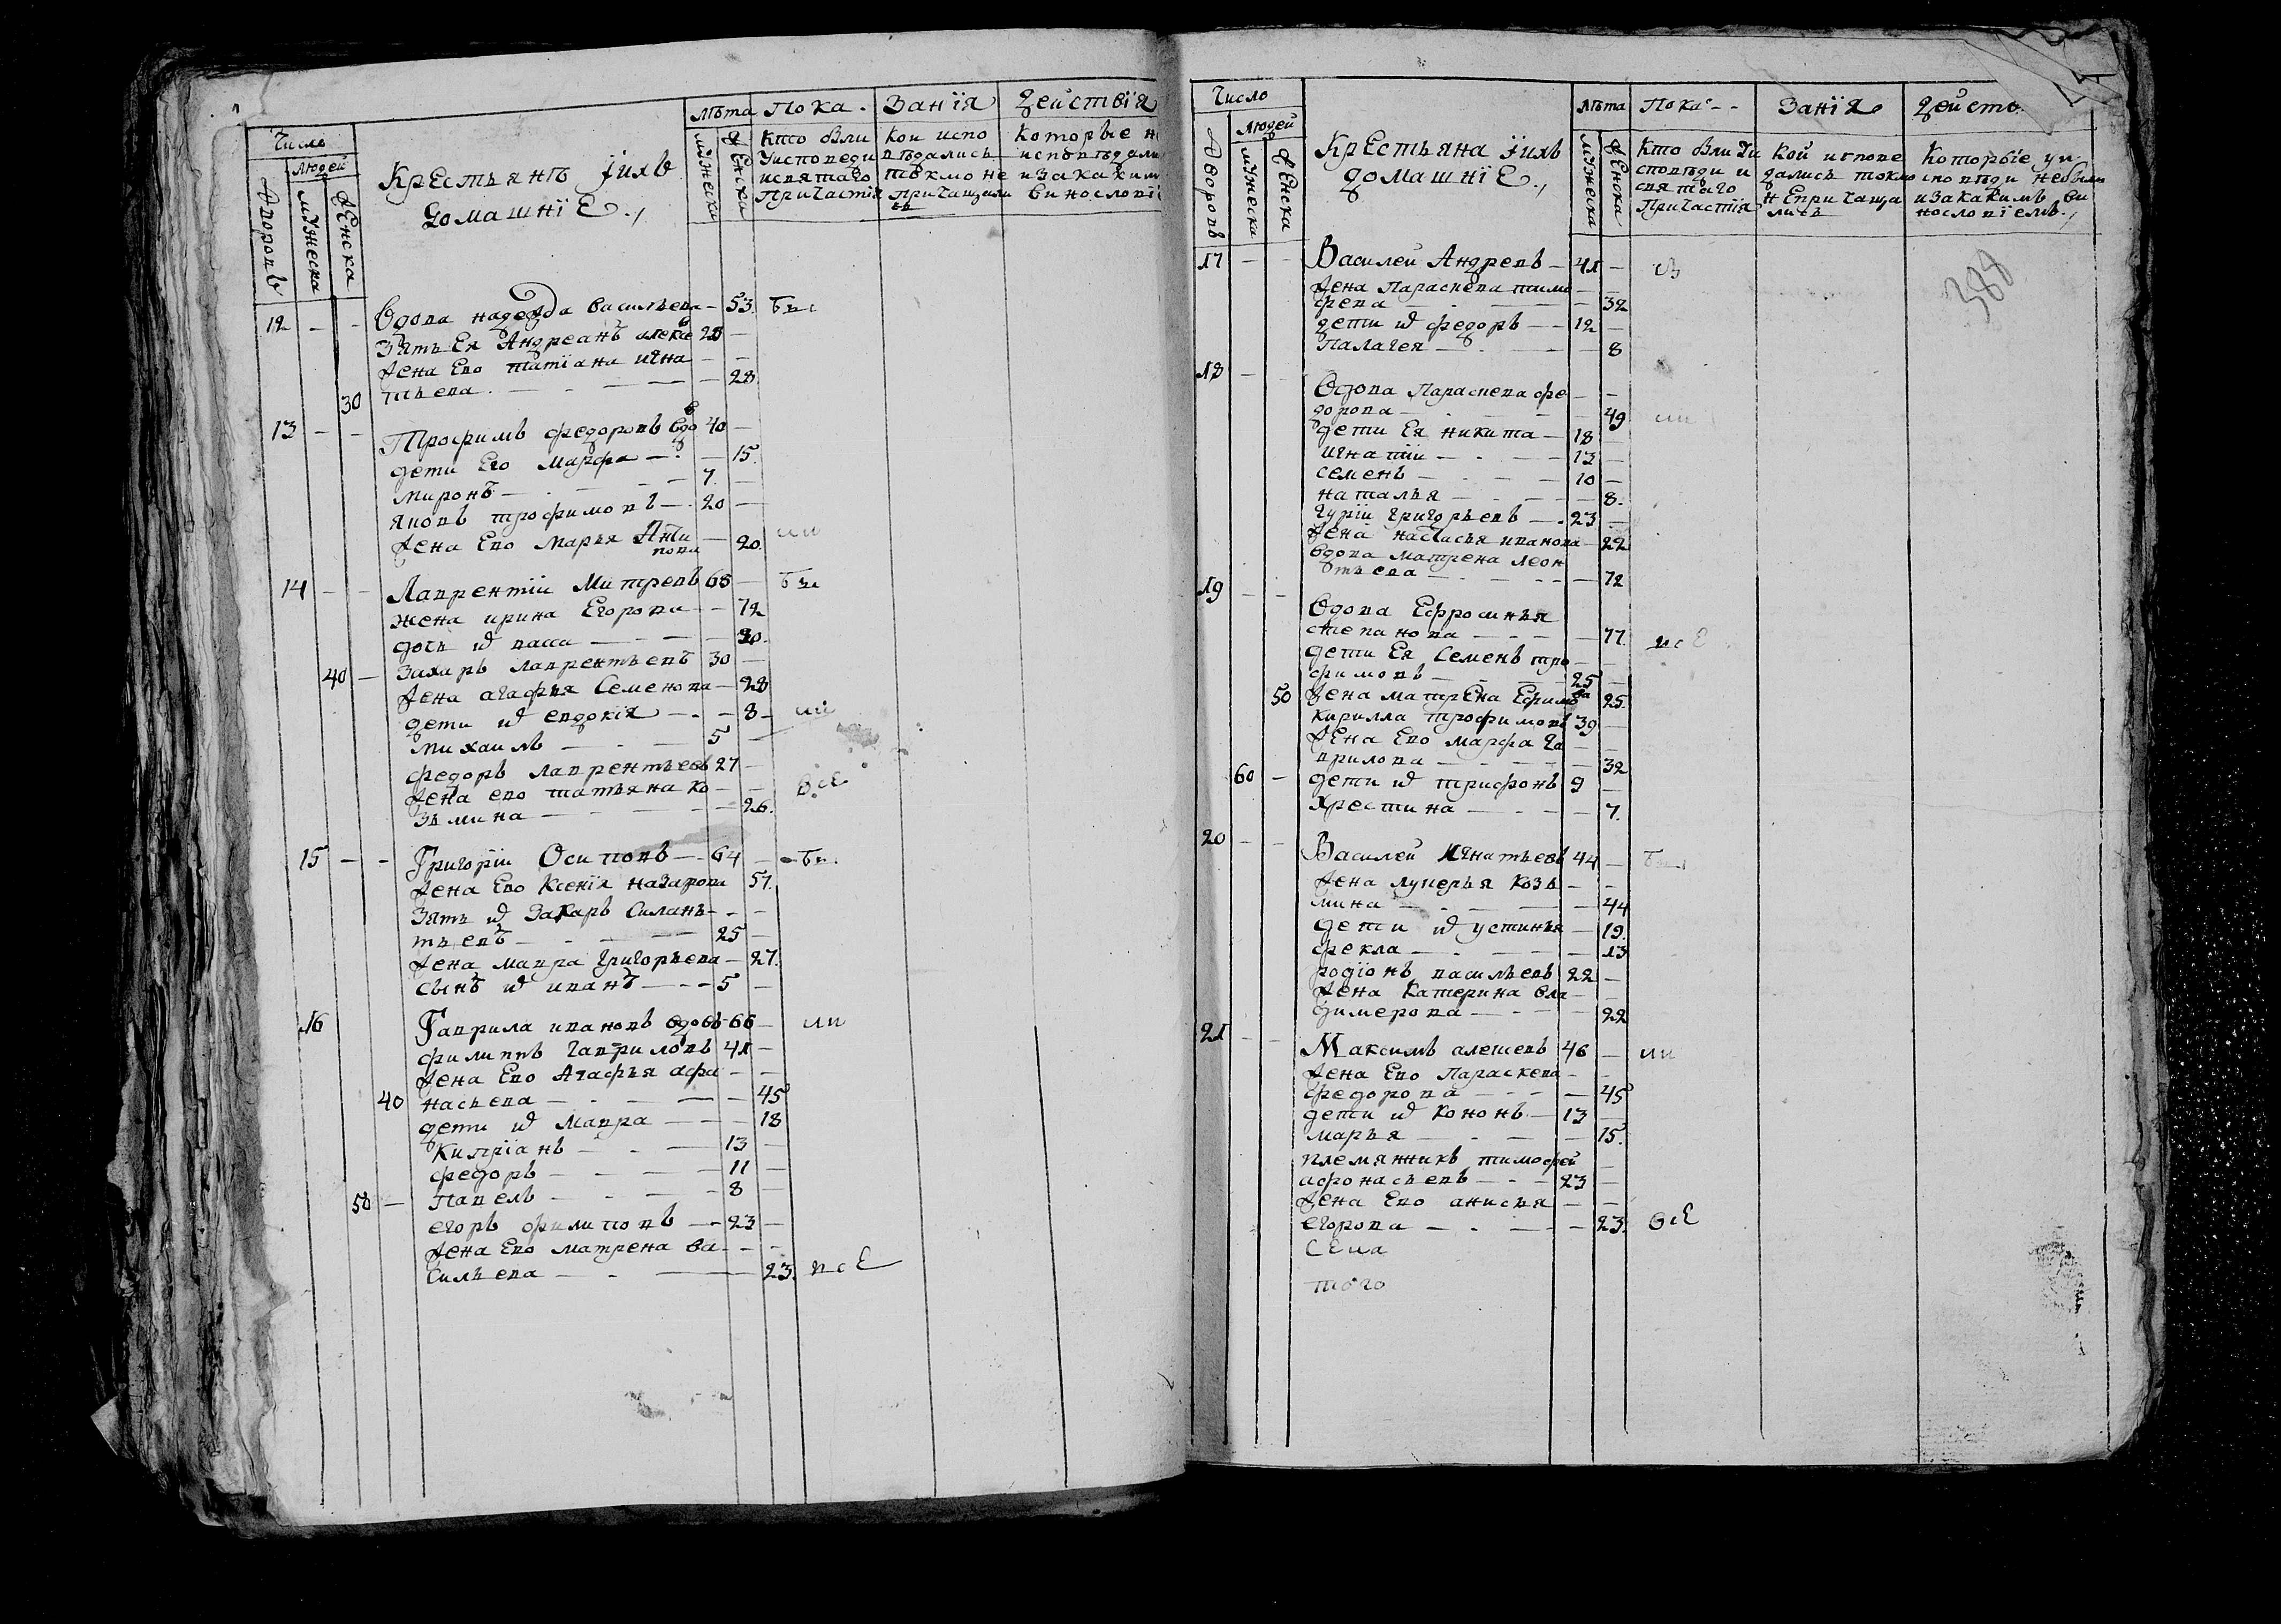 Число
Людей
Дворовъ
мужеска
женска
Крестьянъ їихъ
домашнїе.,
лѣта
мужеска
женска
Пока-
занїя
действїя
Кто были
Уисповеди
исвятаго
Причастїя
кои испо
ведались
токмо не
причащали
сь
Которые н
исповѣдали
изакакими
винословїе
12 - - Вдова надежда васильева - 53. бы
Зять Ея Андреанъ алекѣе в 28 -
жена Ево татїана игна - -
30 тьева. - 28.
13 - - Трофимъ федоровъ вдо в 40 -
дети Его Марфа - 15.
миронъ - 7. -
яковъ трофимовъ - 20 -
жена Ево Марья Анти
пова - 20. ли
14 - - Лаврентїи Митревъ 68 - бы
жена ирина Егорова - 72
дочь их васса - 20.
40 - Захаръ лаврентьевъ 30 -
жена агафья Семенова - 28
дети их евдокїя - 8 - ли
михаилъ - 5 -
федоръ лаврентьевъ 27 -
жена ево татьяна ко - -
зьмина - 26. все
15 - - Григорїи Осиповъ - 64 - бы.
жена Ево Ксенїя назарова 57.
Зять их Захаръ Силанъ - -
тьевъ - 25 -
жена мавра григорьева - 27.
сынъ их иванъ - 5 -
16 Гаврила ивановъ вдовъ 66 - ли
филиппъ гавриловъ 41 -
жена Ево Агафья афа - -
40 насьева - 45
дети их мавра - 18
Кипрїанъ - 13 -
федоръ - 11 -
50 - Павелъ - 8 -
егоръ филиповъ - 23 -
жена Ево матрена ва - -
сильева - 23. все
Число
Людей
Дворовъ
мужеска
женска
Крестьяна їихъ
домашнїЕ.,
лѣта
мужеска
женска
Пока- -
Занїя
дейстъ.
Кто были Уи
сповѣди и
святаго
Причастїя
Кои испове
дались токмо
неприЧаща
лись
Которые, уи
сповѣди небыли
изакакимъ ви
нословїемъ.,
388
17 - - Василей Андревъ - 41 -
жена Параскева тимо - -
фева - 32
дети их федоръ - 12 -
Палагея - 8
18 - - Вдова Параскева фе - -
дорова - 49 ли
дети Ея никита - 18 -
игнатїи - 13 -
семенъ - 10 -
наталья - 8.
гурїи григорьевъ - 23 -
жена настасья иванова - 22
вдова матрена леон
тьева - 72
19 - - Вдова Ефросинья
степанова - 77. все
дети Ея Семенъ тро - -
фимовъ - 25 -
50 жена матрЕна Ефимова 25.
Кирилла трофимовъ 39 -
жена Ево марфа га - -
врилова - 32
60 - дети их трифонъ 9 -
Христина - 7.
20 - - Василей Игнатьевъ 44 - бы
жена лукерья козь - -
мина - 44
дети их устинья - 19.
фекла - 13
родїонъ васильевъ 22 -
жена Катерина вла - -
димерова - 22
21 - - Максимъ алексевъ 46 - ли
жена Ево Параскева - -
федорова - 45
дети их Кононъ - 13 -
марья - 15.
племянникъ тимофей -
афонасьевъ - 23 -
жена Ево анисья - -
егорова - 23. все
сЕла
того